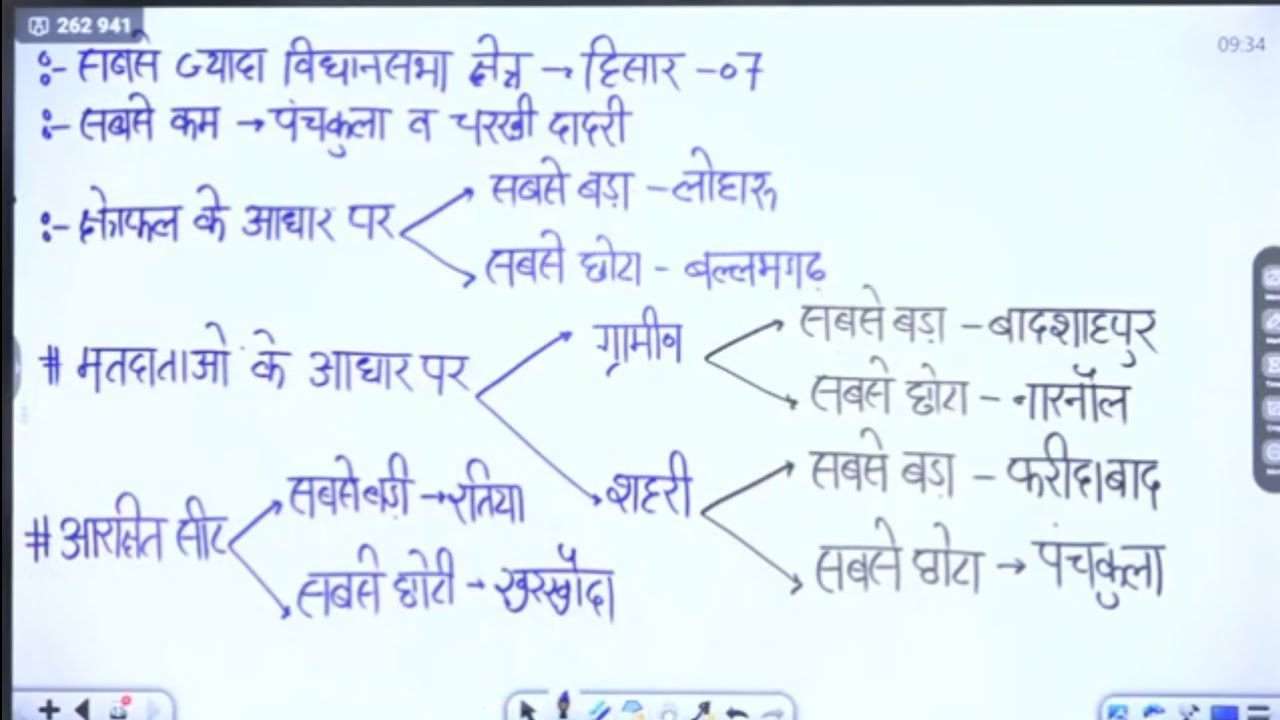 262 941
09:34
:- सबसे ज्यादा विधानसभा क्षेत्र → हिसार -07
:- सबसे कम → पंचकुला व चरखी दादरी
:- क्षेत्रफल के आधार पर
सबसे बड़ा - लोहारू
सबसे छोटा - बल्लभगढ़
# मतदाताओं के आधार पर
ग्रामीण
सबसे बड़ा - बादशाहपुर
सबसे छोटा - नारनौल
शहरी
सबसे बड़ा - फरीदाबाद
सबसे छोटा → पंचकुला
# आरक्षित सीट
सबसे बड़ी → रतिया
सबसे छोटी - खरखौदा